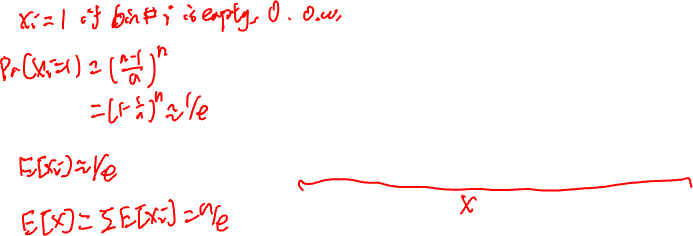 xi=1 if bin #i is empty, 0. o.w.
Pr(xi=1) = (n-1/n)^n
= (1-1/n)^n ≈ 1/e
E[xi] ≈ 1/e
E[X] = ΣE[xi] = n/e
X